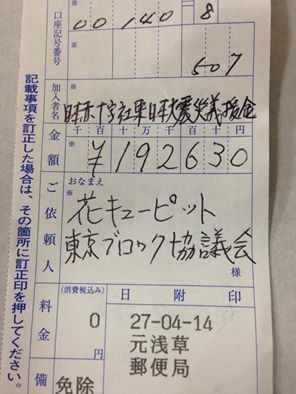 口座記号番号
00 140 8
507
加入者名
※
日本赤十字社東日本大震災義援金
金額
千百十万千百十円
※
¥192630
ご依頼人
おなまえ
※
花キューピット
東京ブロック協議会
様
料金
(消費税込み)
0
円
日附印
27-04-14
元浅草
郵便局
備
免除
記載事項を訂正した場合は、その箇所に訂正印を押してください。